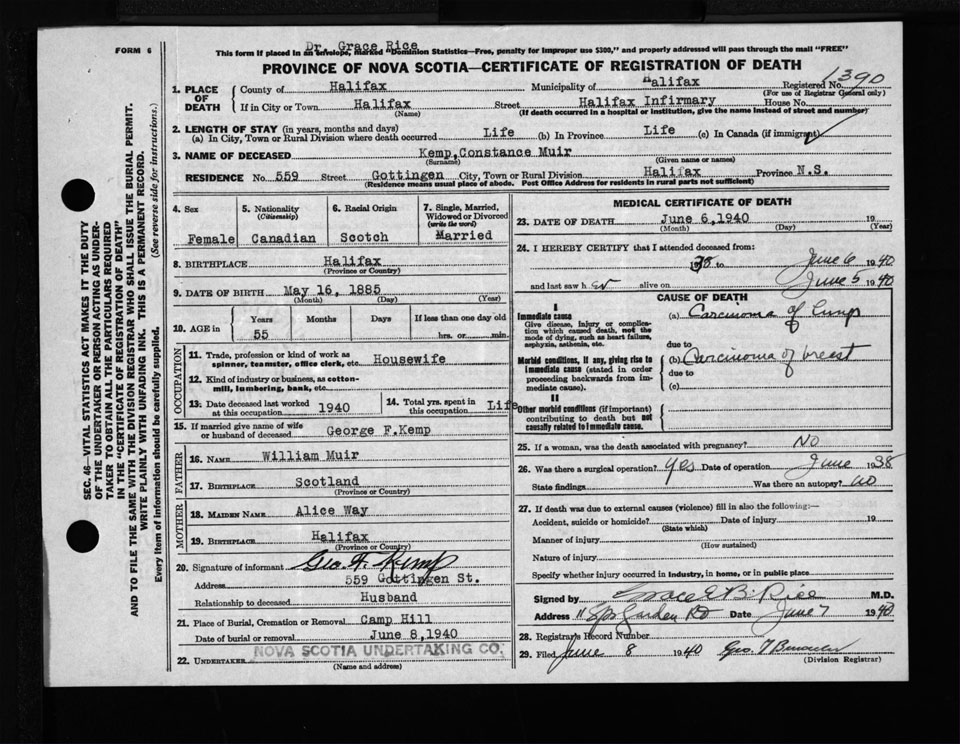 FORM 6
Dr. Grace Rice
This form if placed in an envelope, marked "Dominion Statistics—Free, penalty for improper use $300," and properly addressed will pass through the mail "FREE"
PROVINCE OF NOVA SCOTIA—CERTIFICATE OF REGISTRATION OF DEATH
1. PLACE OF DEATH County of Halifax Municipality of Halifax Registered No. 1390
(For use of Registrar General only)
If in City or Town Halifax Street Halifax Infirmary House No.
(Name) (If death occurred in a hospital or institution, give the name instead of street and number)
2. LENGTH OF STAY (in years, months and days)
(a) In City, Town or Rural Division where death occurred Life (b) In Province Life (c) In Canada (if immigrant)
3. NAME OF DECEASED Kemp,Constance Muir
(Surname) (Given name or names)
RESIDENCE No. 559 Street Gottingen City, Town or Rural Division Halifax Province N.S.
(Residence means usual place of abode. Post Office Address for residents in rural parts not sufficient)
4. Sex 5. Nationality (Citizenship) 6. Racial Origin 7. Single, Married, Widowed or Divorced (write the word)
Female Canadian Scotch Married
8. BIRTHPLACE Halifax
(Province or Country)
9. DATE OF BIRTH May 16, 1885
(Month) (Day) (Year)
10. AGE in Years Months Days If less than one day old
55 hrs. or min.
OCCUPATION
11. Trade, profession or kind of work as spinner, teamster, office clerk, etc. Housewife
12. Kind of industry or business, as cotton-mill, lumbering, bank, etc.
13. Date deceased last worked at this occupation 1940 14. Total yrs. spent in this occupation Life
15. If married give name of wife or husband of deceased George F.Kemp
FATHER
16. NAME William Muir
17. BIRTHPLACE Scotland
(Province or Country)
MOTHER
18. MAIDEN NAME Alice Way
19. BIRTHPLACE Halifax
(Province or Country)
20. Signature of informant Geo. F. Kemp
Address 559 Gottingen St.
Relationship to deceased Husband
21. Place of Burial, Cremation or Removal Camp Hill
Date of burial or removal June 8,1940
22. UNDERTAKER NOVA SCOTIA UNDERTAKING CO.
(Name and address)
MEDICAL CERTIFICATE OF DEATH
23. DATE OF DEATH June 6,1940 19
(Month) (Day) (Year)
24. I HEREBY CERTIFY that I attended deceased from:
1938 to June 6 1940
and last saw her alive on June 5 1940
CAUSE OF DEATH
I
Immediate cause
Give disease, injury or complication which caused death, not the mode of dying, such as heart failure, asphyxia, asthenia, etc.
(a) Carcinoma of lung
due to
Morbid conditions, if any, giving rise to immediate cause (stated in order proceeding backwards from immediate cause).
(b) Carcinoma of breast
due to
(c)
II
Other morbid conditions (if important) contributing to death but not causally related to immediate cause.
25. If a woman, was the death associated with pregnancy? No
26. Was there a surgical operation? Yes Date of operation June 1938
State findings Was there an autopsy? No
27. If death was due to external causes (violence) fill in also the following:—
Accident, suicide or homicide? Date of injury 19
(State which)
Manner of injury
(How sustained)
Nature of injury
Specify whether injury occurred in industry, in home, or in public place
Signed by Grace E B. Rice M.D.
Address Garden Rd Date June 7 1940
28. Registrar's Record Number
29. Filed June 8 1940 Geo.
(Division Registrar)
SEC. 46—VITAL STATISTICS ACT MAKES IT THE DUTY
OF THE UNDERTAKER OR PERSON ACTING AS UNDER-
TAKER TO OBTAIN ALL THE PARTICULARS REQUIRED
IN THE "CERTIFICATE OF REGISTRATION OF DEATH"
AND TO FILE THE SAME WITH THE DIVISION REGISTRAR WHO SHALL ISSUE THE BURIAL PERMIT.
WRITE PLAINLY WITH UNFADING INK. THIS IS A PERMANENT RECORD.
Every item of information should be carefully supplied. (See reverse side for instructions.)